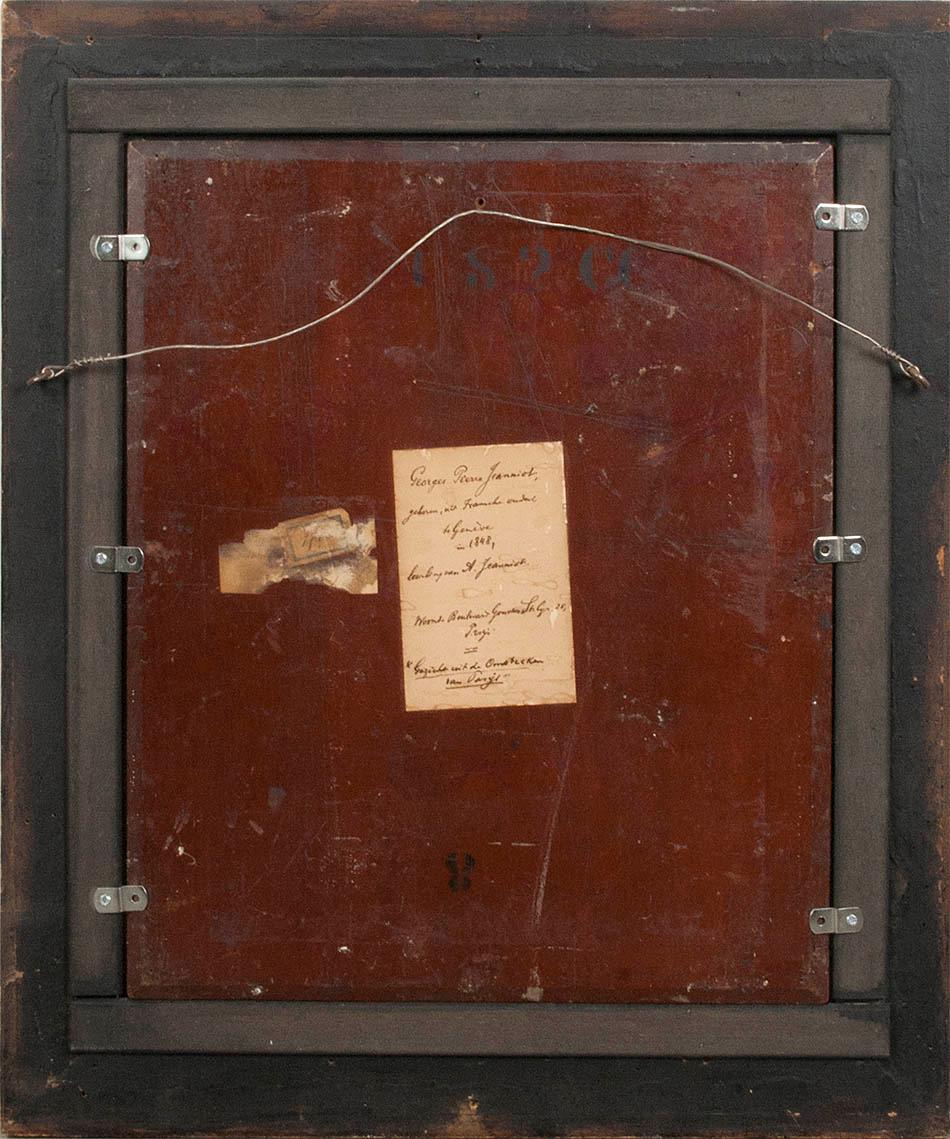 Georges Pierre Jeanniot,
geboren, uit Fransche ouders
te Genève
in 1848,
leerling van A. Jeanniot.
Woont: Boulevard Gouvion St. Cyr
"Gezicht uit de Omstreken
van Parijs"
8